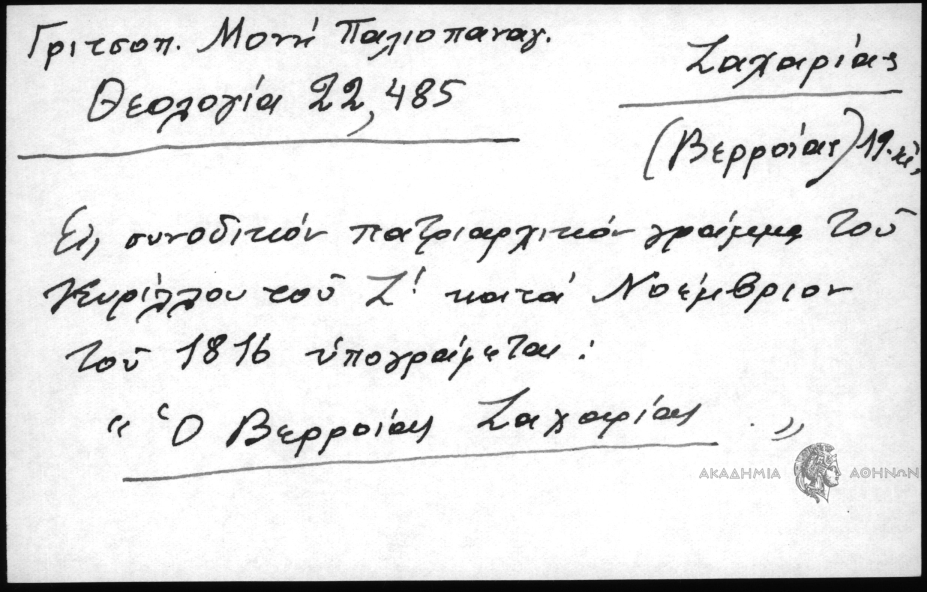 Γριτσοπ. Μονή Παλιοπαναγ.
Θεολογία 22, 485
Ζαχαρίας
(Βερροίας) 19.
Εἰς συνοδικόν πατριαρχικόν γράμμα τοῦ
Κυρίλλου τοῦ Ζ! κατά Νοέμβριον
τοῦ 1816 ὑπογράφεται :
“ Ὁ Βερροίας Ζαχαρίας . ”
ΑΚΑΔΗΜΙΑ ΑΘΗΝΩΝ